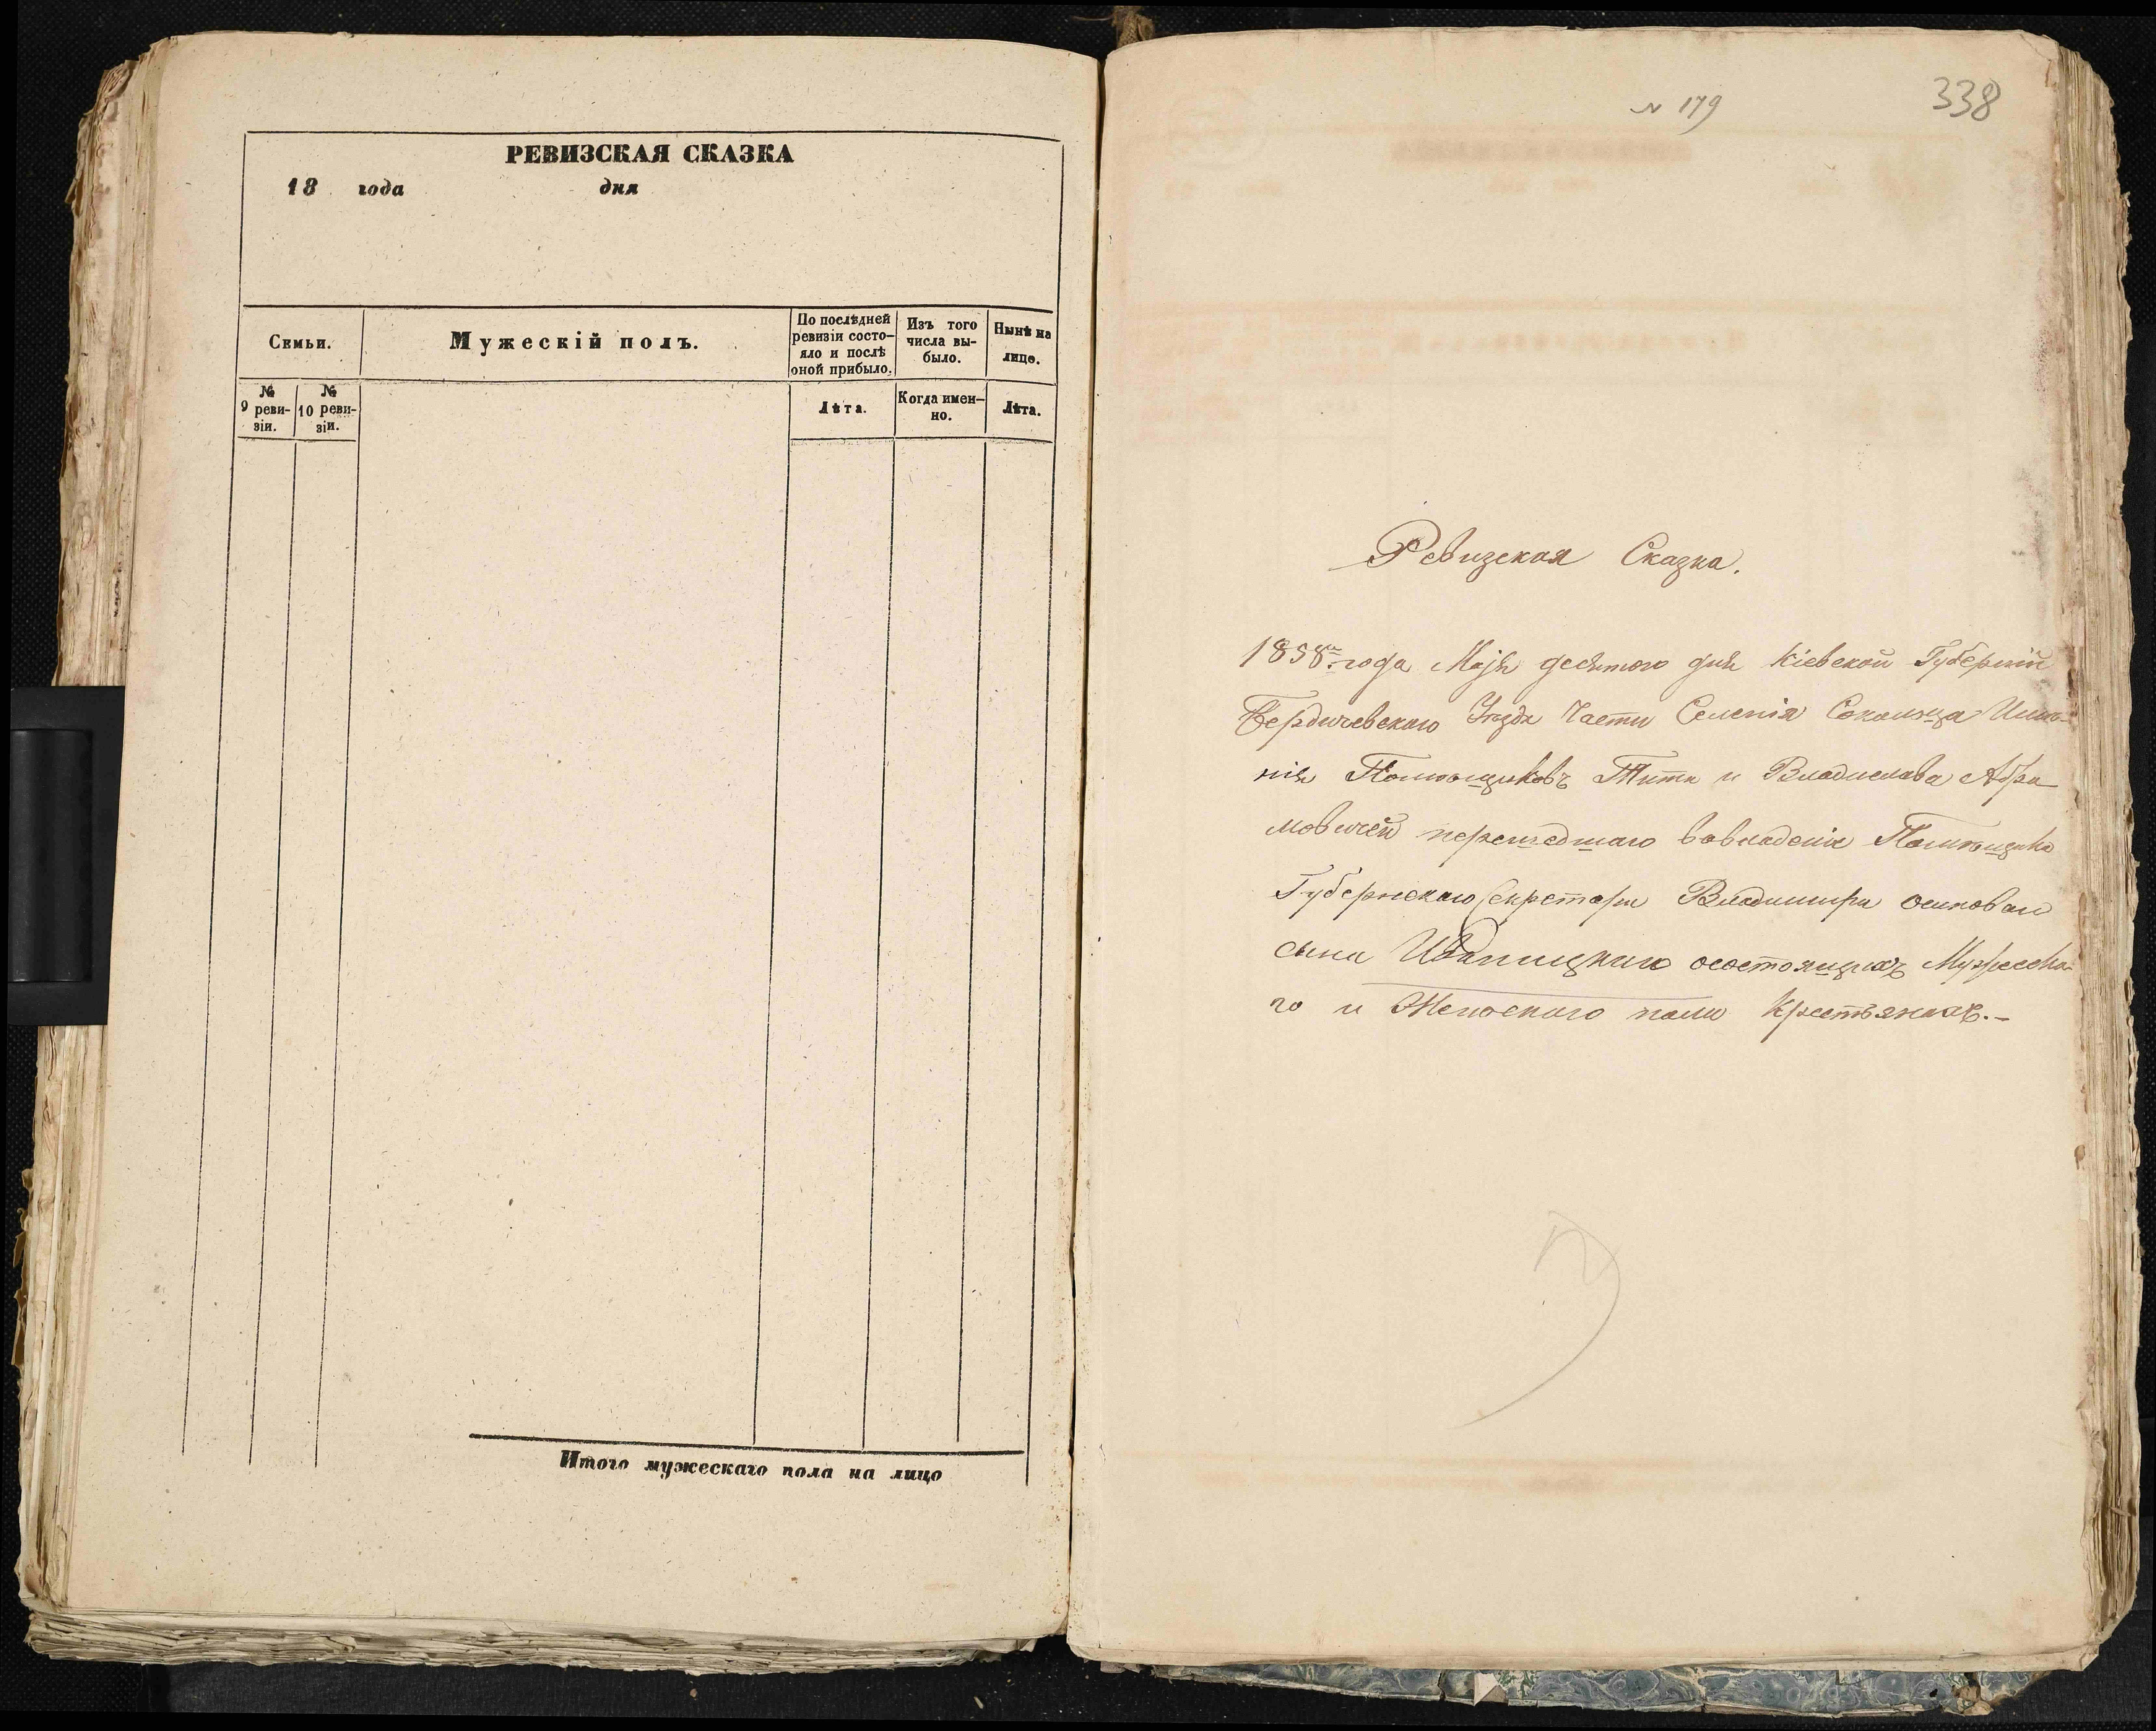 РЕВИЗСКАЯ СКАЗКА
18 года дня
Семьи.
Мужескій полъ.
По послѣдней ревизіи состо-
яло и послѣ оной прибыло.
Изъ того числа вы-
было.
Нынѣ на лицо.
№ 9 реви-
зіи.
№ 10 реви-
зіи.
Лѣта.
Когда имен-
но.
Лѣта.
Итого мужескаго пола на лицо
№ 179
338
Ревизская Сказка.
1858го года Маія десятого дня Кіевской Губерніи
Бердичевского Уезда Части Селенія Сокольца Имѣ-
нія Помѣщиковъ Тита и Владислава Абра
мовичей перешедшаго вовладеніе Помѣщика
Губернскаго Секретаря Владимира осипова
сына осостоящихъ Мужеска-
го и Женского пола Крестьянахъ.-